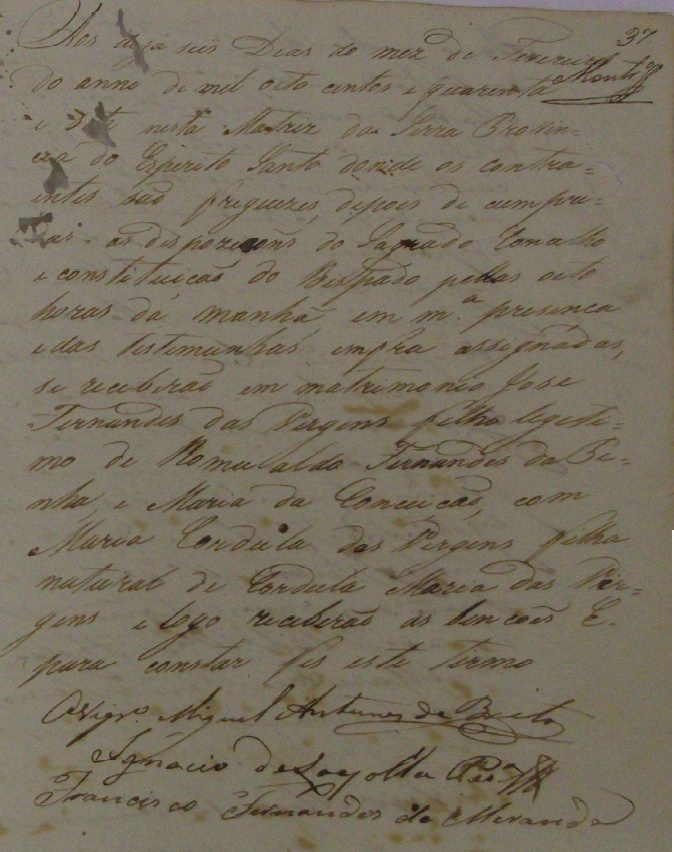 37
Aos deza seis Dias do mez de Fevereiro
do anno de mil oito centos e quarenta
e Sete nesta Matriz da Serra Provin=
cia do Espirito Santo donde os contra=
entes são freguezes, depois de cumpri=
das as dispoziçoñs do Sagrado Concilho
e constituicaõ do Bispado pellas oito
horas da manhã em m.ª presenca
e das testimunhas imfra assignádas,
se receberaõ em matrimonio Jose
Fernandes das Virgens filho legeti=
mo de Romualdo Fernandes da Pe=
nha, e Maria da Conceicaõ, com
Maria Cordula das Virgens filha
natural de Cordula Maria das Vir=
gens e logo receberaõ as bencoẽs E.
para constar fis este termo
O Vigr.º Miguel Antunes de Brito
Ignacio de Loyolla
Francisco Fernandes de Miranda